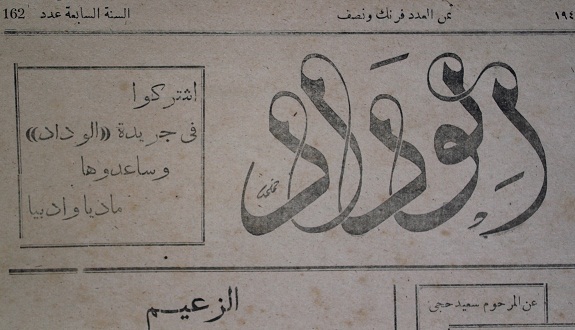 السنة السابعة عدد 162
ثمن العدد فرنك ونصف
١٩٤
الوداد
اشتركوا
فى جريدة «الوداد»
وساعدوها
ماديا وادبيا
الزعيم
عن المرحوم سعيد حجى